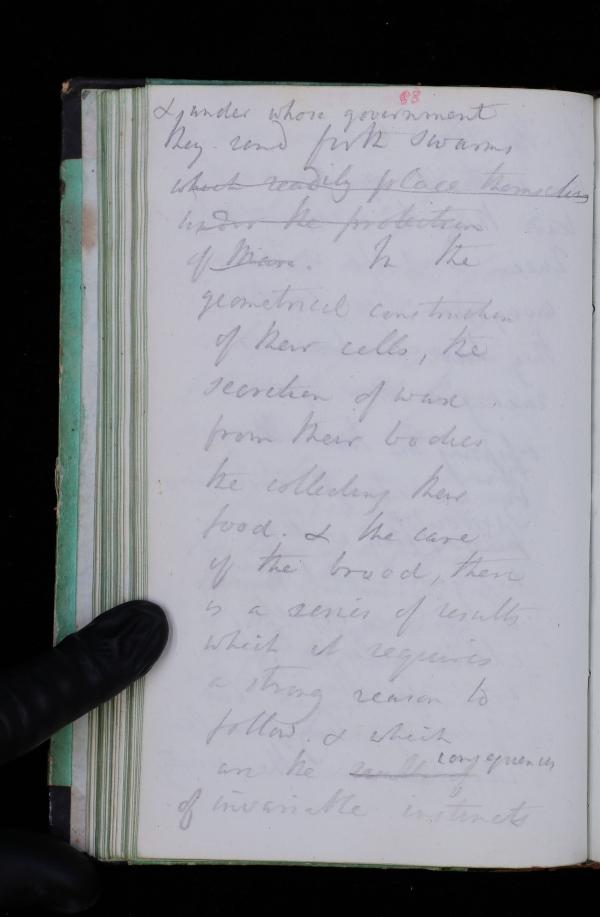 88
& under whose government
they send forth swarms
which readily place themselves
under the protection
of Man. In the
geometrical construction
of their cells, the
secretion of wax
from their bodies
the collecting their
food. & the care
of the brood, there
is a series of results
which it requires
a strong reason to
follow. & which
are the consequences
of invariable instincts